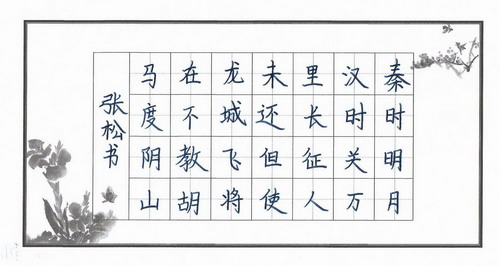 秦时明月
汉时关万
里长征人
未还但使
龙城飞将
在不教胡
马度阴山
张松书